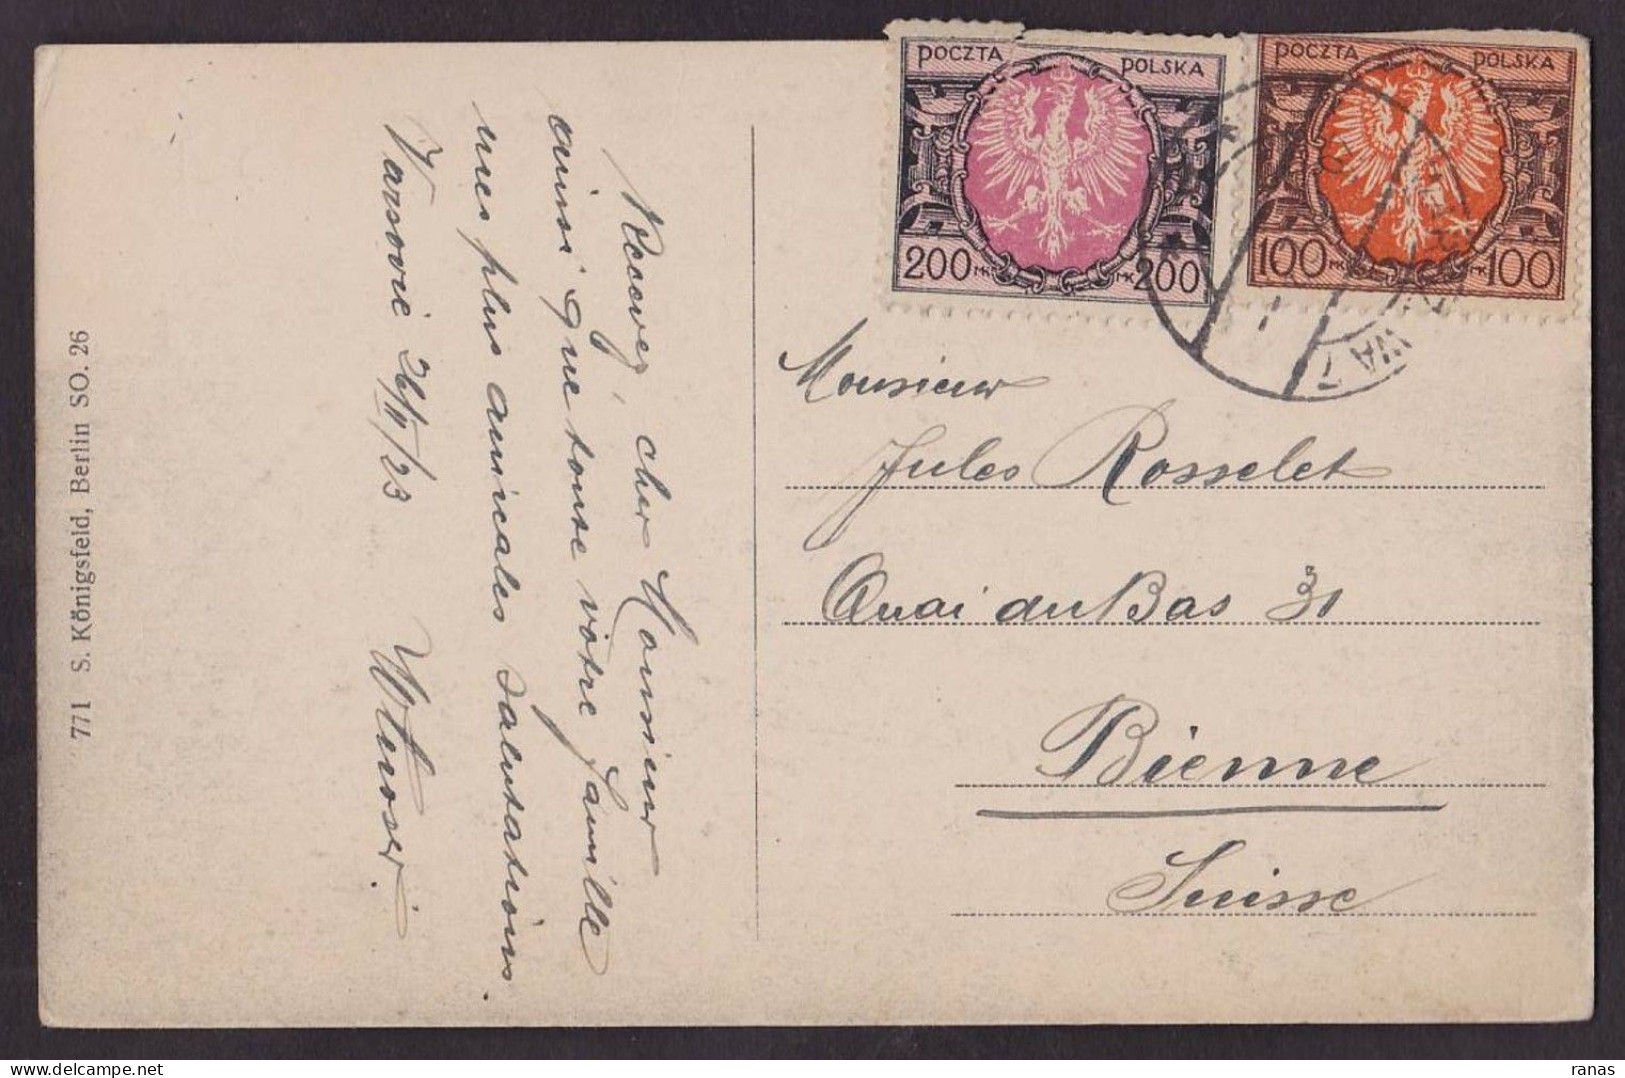 POCZTA POLSKA
200 MK MK 200
POCZTA POLSKA
100 MK MK 100
WA 7
Monsieur
Jules Rosselet
Quai du Bas 31
Bienne
Suisse
Recevez, cher Monsieur
ainsi que toute votre famille
mes plus amicales salutations.
Varsovie 26/II/23
771 S. Königsfeld, Berlin SO. 26
ranas